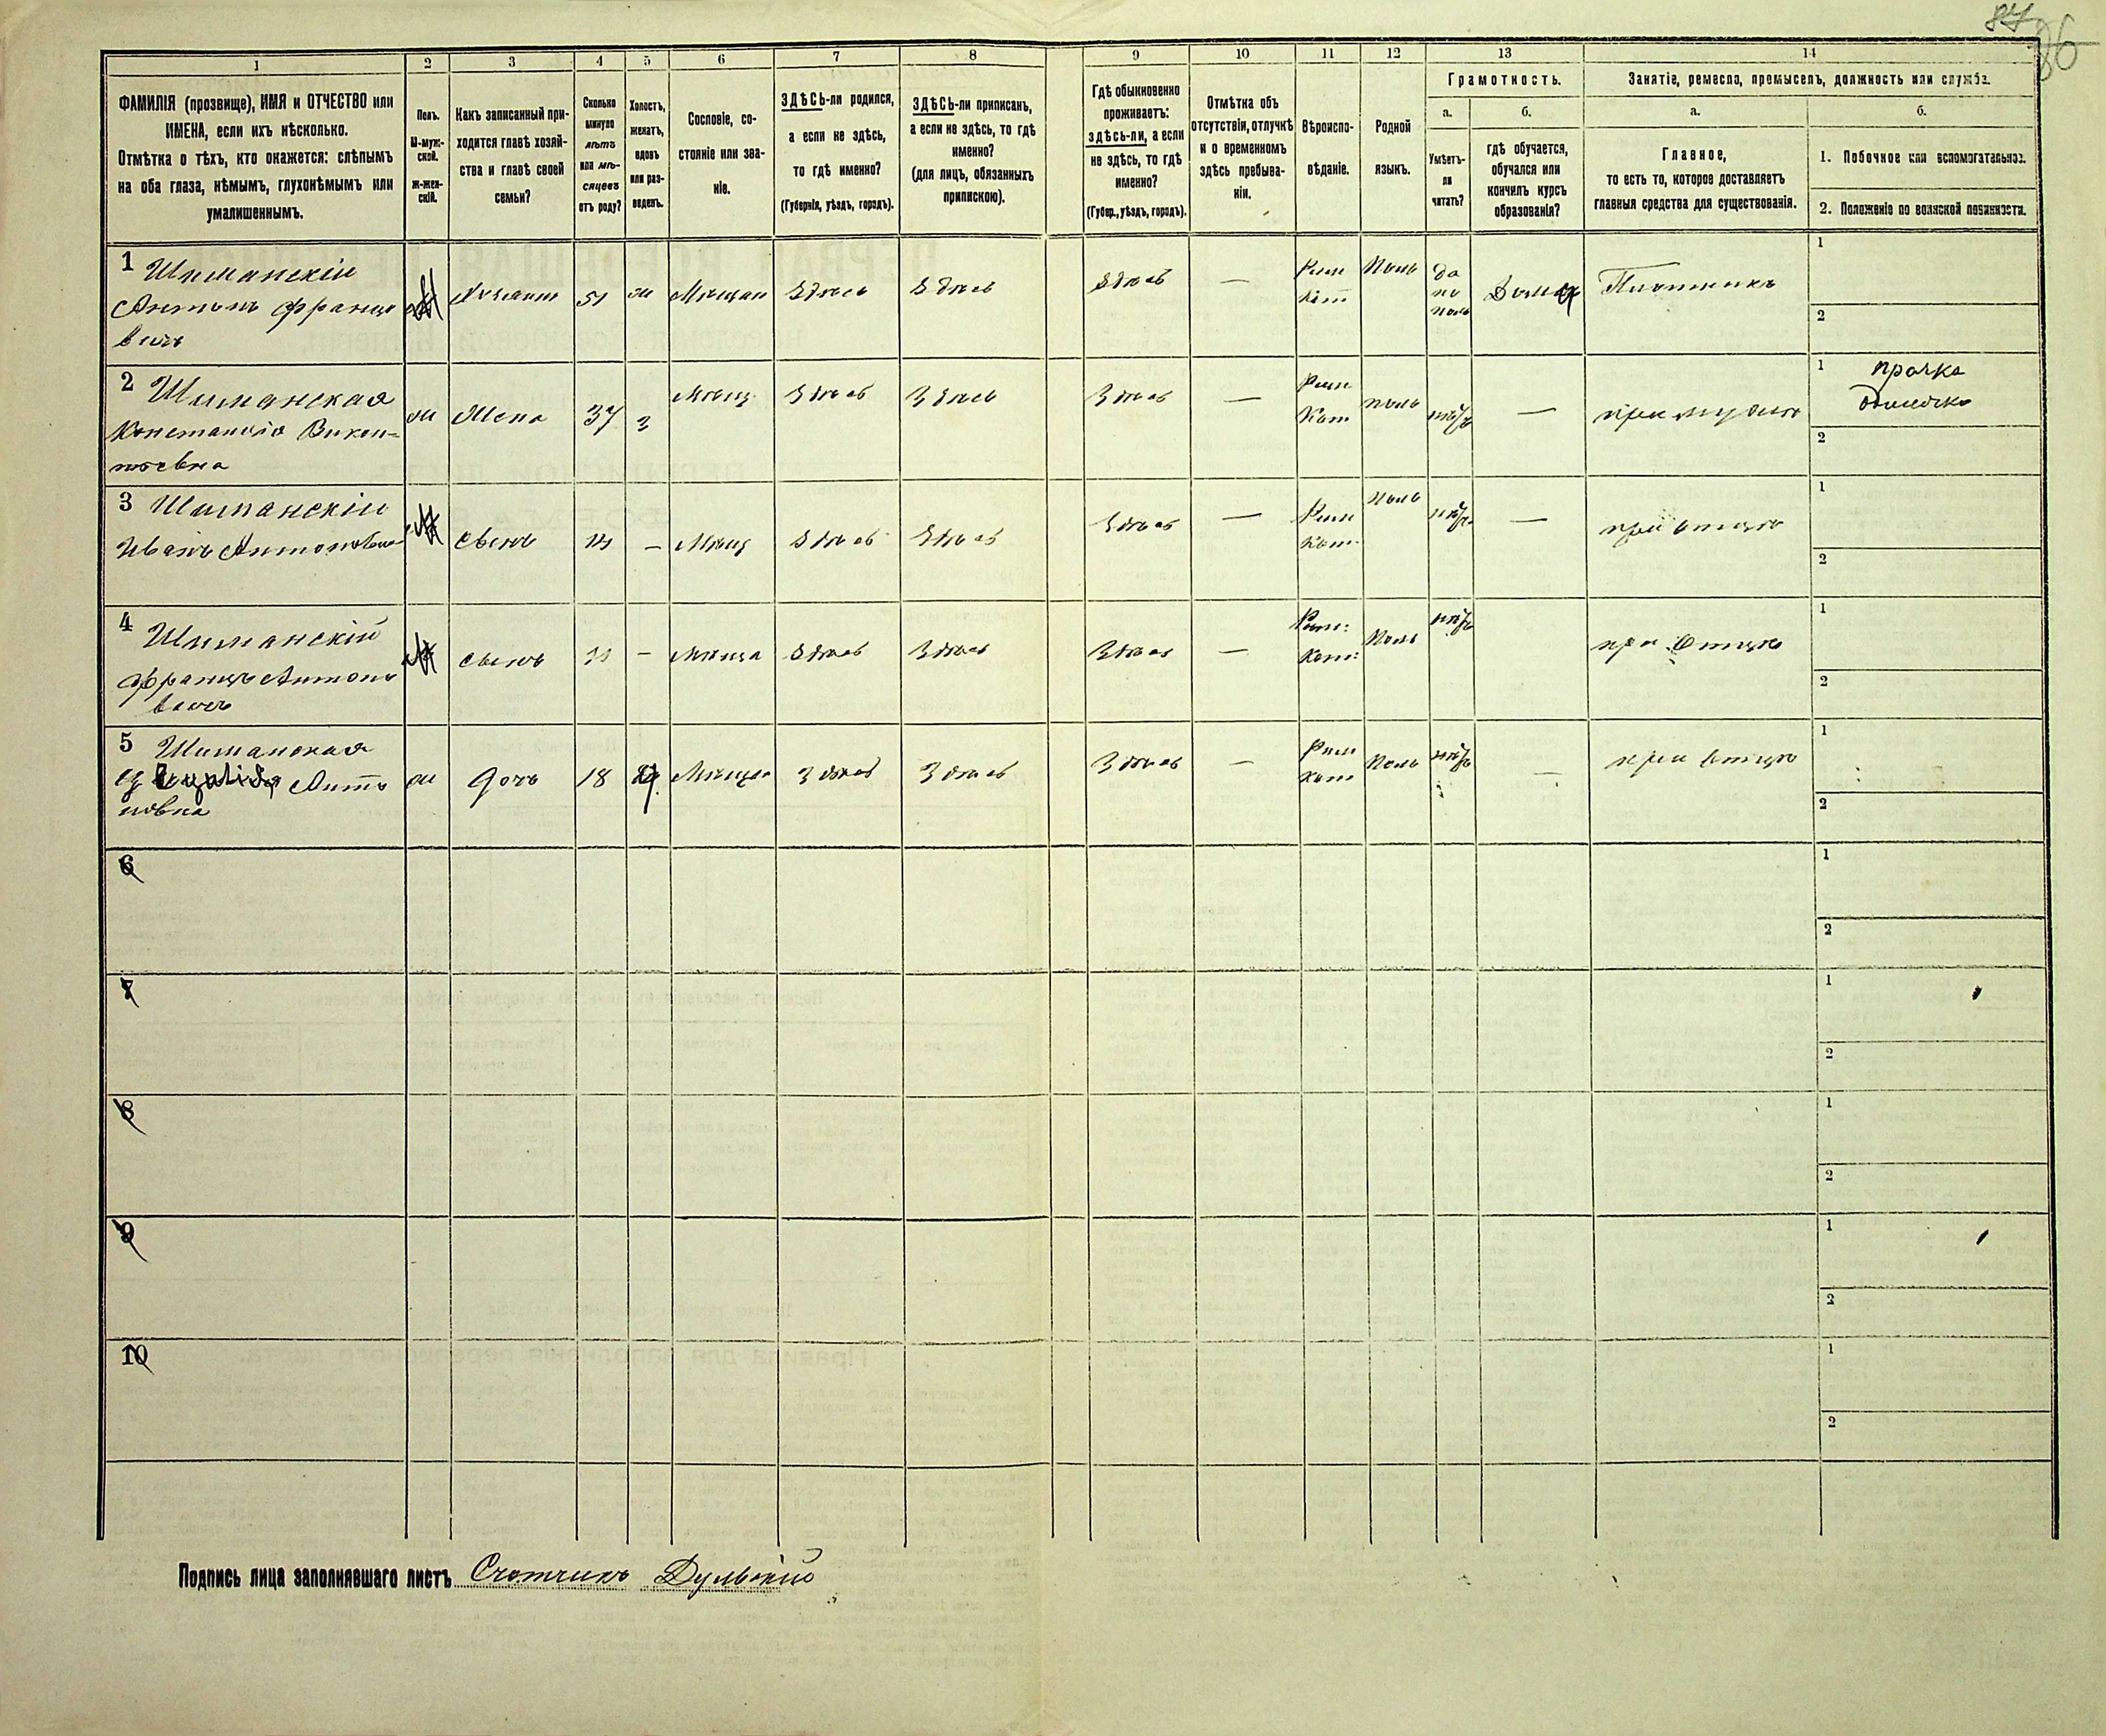 87
86
1 2 3 4 5 6 7 8 9 10 11 12 13 14
ФАМИЛІЯ (прозвище), ИМЯ и ОТЧЕСТВО или
ИМЕНА, если ихъ нѣсколько.
Отмѣтка о тѣхъ, кто окажется: слѣпымъ
на оба глаза, нѣмымъ, глухонѣмымъ или
умалишеннымъ.
Полъ.
М-муж-
ской.
Ж-жен-
скій.
Какъ записанный при-
ходится главѣ хозяй-
ства и главѣ своей
семьи?
Сколько
минуло
лѣтъ
или мѣ-
сяцевъ
отъ роду?
Холостъ,
женатъ,
вдовъ
или раз-
веденъ.
Сословіе, со-
стояніе или зва-
ніе.
ЗДѢСЬ-ли родился,
а если не здѣсь,
то гдѣ именно?
(Губернія, уѣздъ, городъ).
ЗДѢСЬ-ли приписанъ,
а если не здѣсь, то гдѣ
именно?
(для лицъ, обязанныхъ
припискою).
Гдѣ обыкновенно
проживаетъ:
здѣсь-ли, а если
не здѣсь, то гдѣ
именно?
(Губер., уѣздъ, городъ).
Отмѣтка объ
отсутствіи, отлучкѣ
и о временномъ
здѣсь пребыва-
ніи.
Вѣроиспо-
вѣданіе.
Родной
языкъ.
Грамотность.
а. б.
Умѣетъ-
ли
читать?
гдѣ обучается,
обучался или
кончилъ курсъ
образованія?
Занятіе, ремесло, промыселъ, должность или служба.
а. б.
Главное,
то есть то, которое доставляетъ
главныя средства для существованія.
1. Побочное или вспомогательное.
2. Положеніе по воинской повинности.
1 Шиманскій
Антонъ Францо
вичъ
Хозяинъ 51 ж Мѣщан Здѣсь Здѣсь Здѣсь —
Рим
Кат
Поль
да
по
поль
Дома Плотникъ
1
2
2 Шиманская
Констанція Викен-
тьевна
ж Жена 37 з Мѣщ Здѣсь Здѣсь Здѣсь —
Рим
Кат
поль нѣтъ — при мужѣ
1 прачка
2
3 Шиманскій
Иванъ Антонович
М сынъ 14 — Мѣщ Здѣсь Здѣсь Здѣсь —
Рим
Кат
Поль нѣтъ — при отцѣ
1
2
4 Шиманскій
Францъ Антоно
вичъ
М сынъ 11 — Мѣща Здѣсь Здѣсь Здѣсь —
Рим:
Кат:
Поль нѣтъ при отцѣ
1
2
5 Шиманская
Анто
новна
ж дочь 18 Мѣщан Здѣсь Здѣсь Здѣсь —
Рим
Кат
Поль нѣтъ — при отцѣ
1
2
6
1
2
7
1
2
8
1
2
9
1
2
10
1
2
Подпись лица заполнявшаго листъ Счотчикъ Дульскій